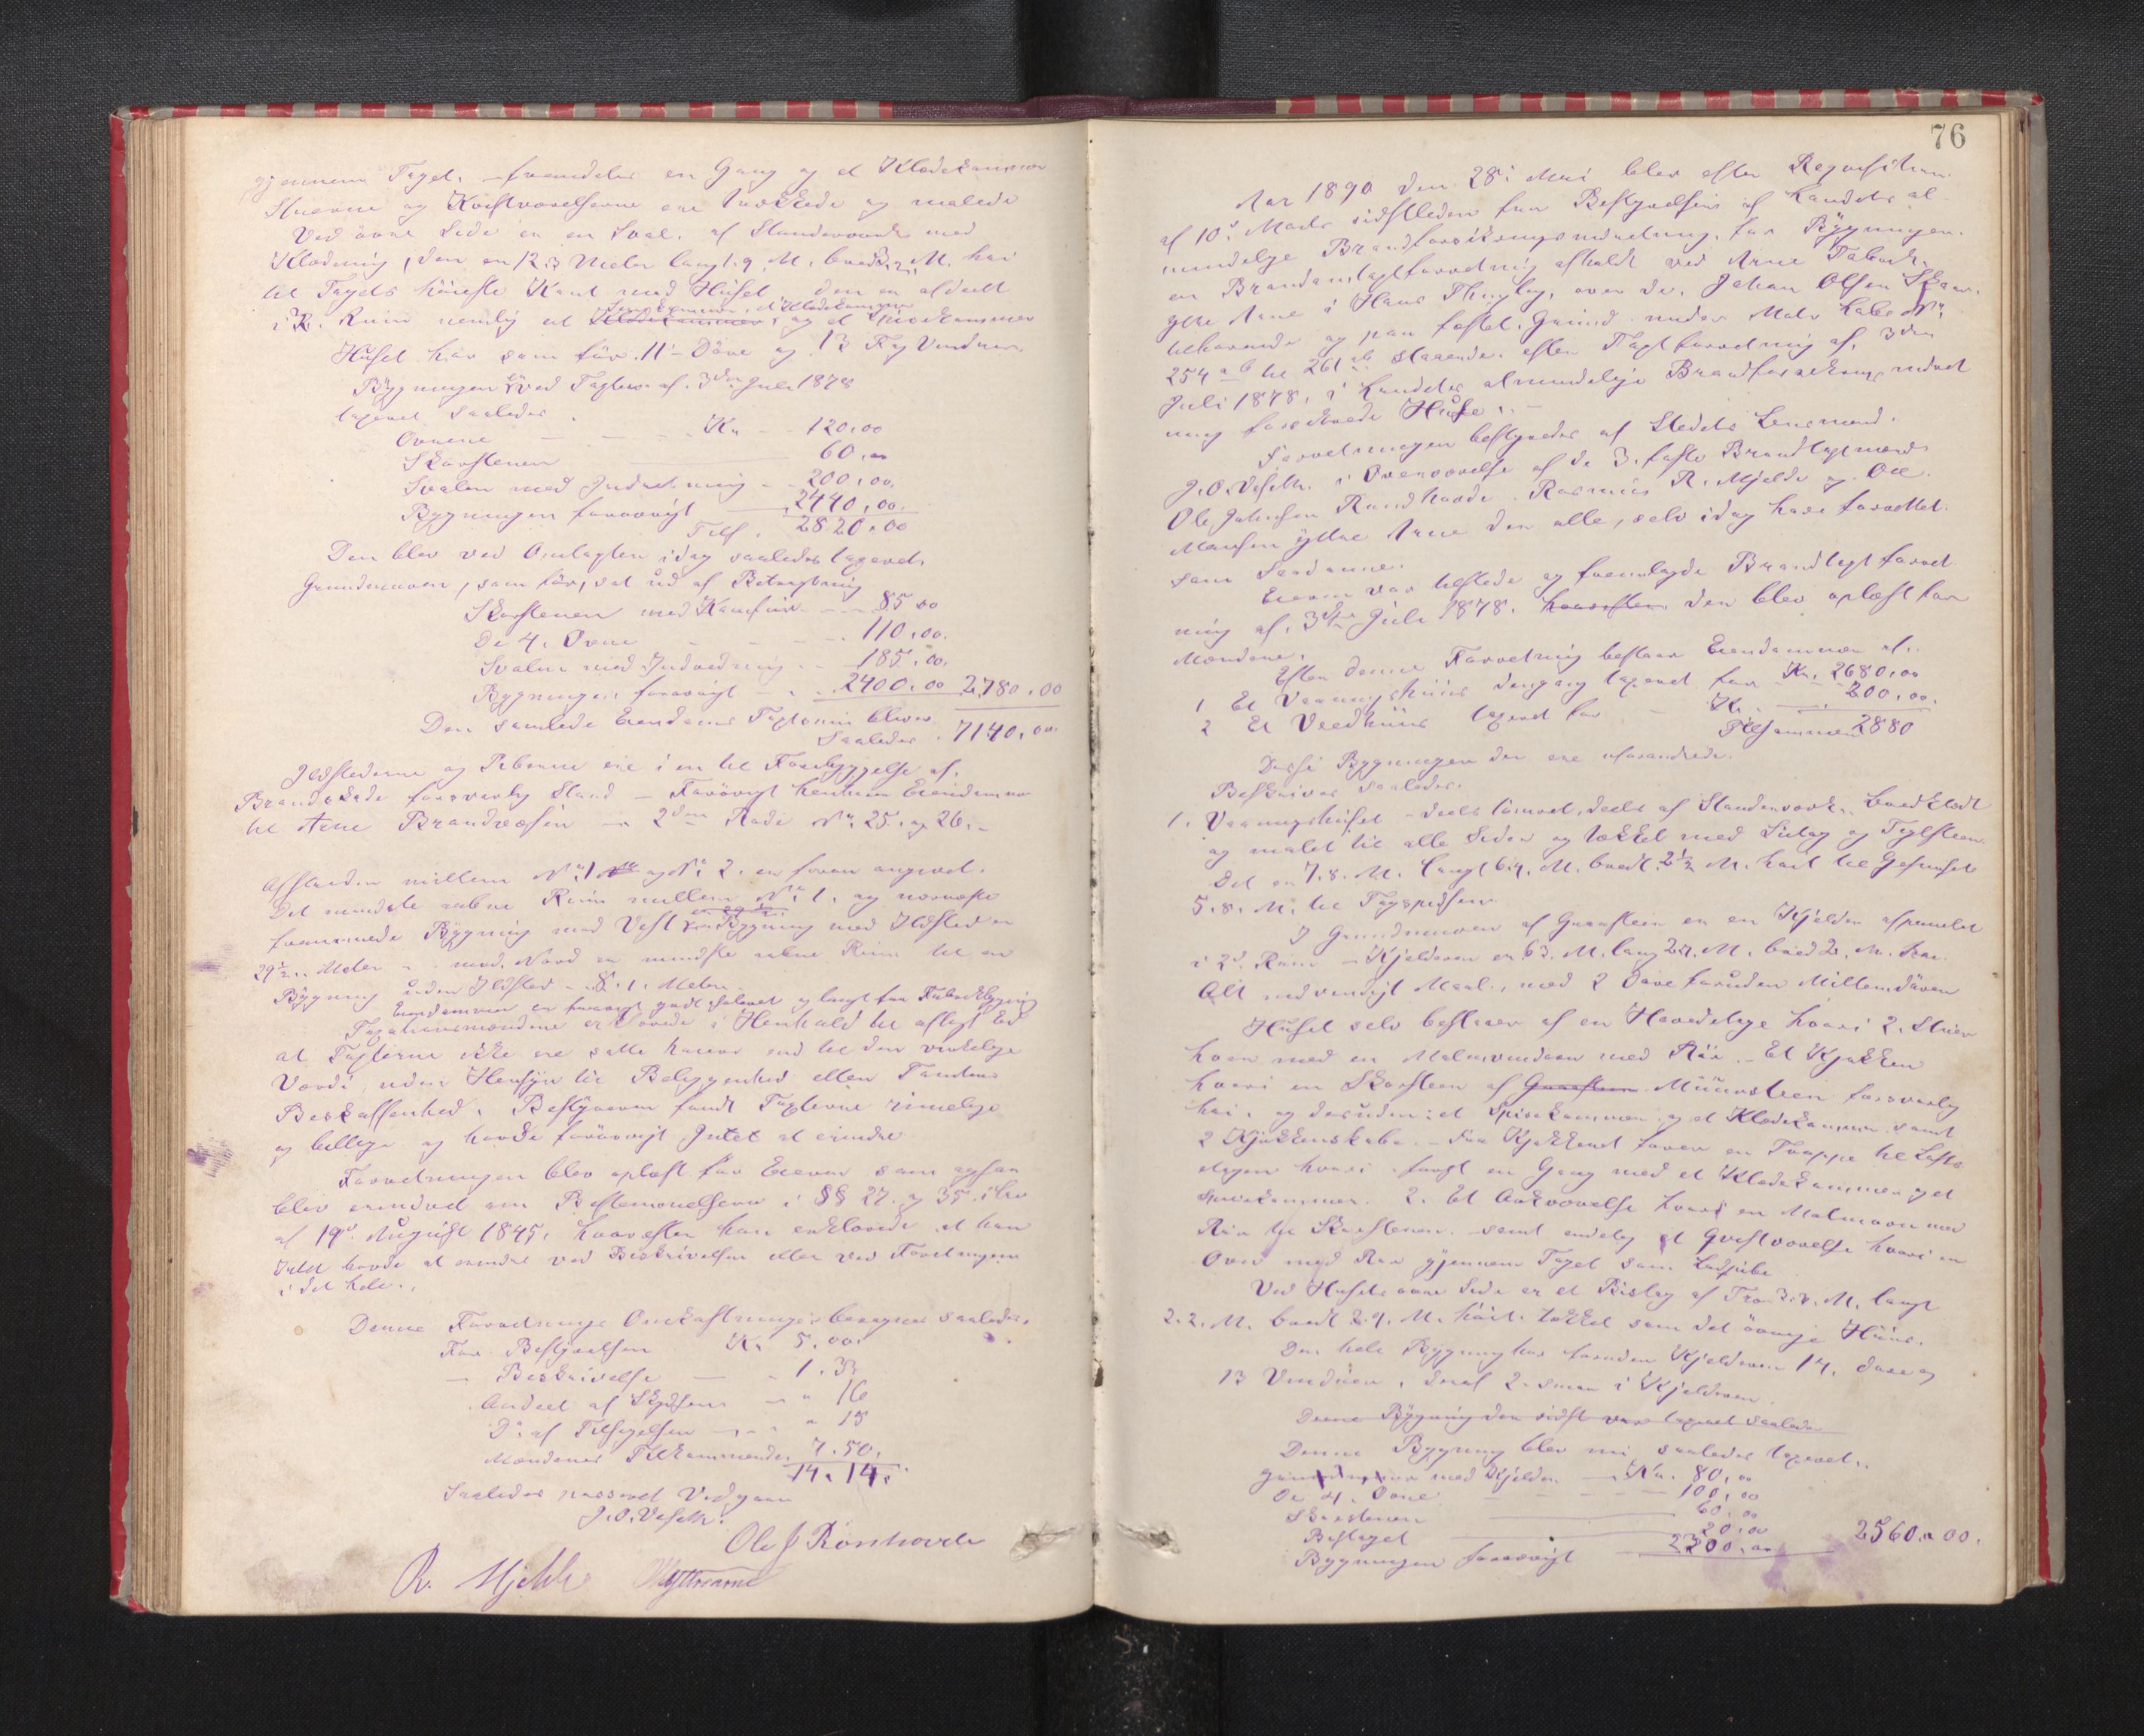 gjennem Taget. – fremdeles en Gang og et Klædekammer
Stuerne og Kvistværelserne ere trækkede og malede
Ved øvre Side er en Sval. af Standerværk med
Klædning, den er 12.3 Meter langt. 9. M. bredt M. høi
til Tagets høieste Kant med Huset den er afdeelt
i 3. Rum nemlig et Klædekammer, og et Spisekammer
Huset har som før. 11 – Döre og 13 Fag Vinduer.
Bygningen er ved Taxten af. 3die Juli 1878
taxeret saaledes.
Ovnene – – – Kr – 120,00
Skorstenen 60,00
Svalen med Indredning – 200,00.
Bygningen forøvrigt 2440,00.
Tils. 2820,00
Den blev ved Omtaxten idag saaledes taxeret.
Grundmuren, som før, sat ud af Betragtning
Skorstenen med Komfur – – 85 00
De 4. Ovne – – – 110,00.
Svalen med Indredning – 185,00.
Bygningen forøvrigt – 2400,00 2,780,00
Den samlede Eiendoms Taxtsum bliver
Saaledes. 7140,00.
Ildstederne og Piberne ere i en til Forebyggelse af.
Brandskade forsvarlig Stand – Forøvrigt henhører Eiendommen
til Arne Brandvæsen – 2den Rode No 25. og 26. –
Afstanden mellem No 1 og No 2. er foran angivet.
Det mindste aabne Rum mellem No 1. og nærmeste
fremmede Bygning mod Vest Bygning med Ildsted er
29½.. Meter – mod. Nord er mindste aabne Rum til en
Bygning uden Ildsted – 8.1. Meter.
Eiendommen er forøvrigt godt isoleret og langt fra Fabrikbygning
Taxationsmændene erklærede i Henhold til aflagt Ed
at Taxterne ikke ere satte høiere end til den virkelige
Værdi, uden Hensyn til Beliggenhed eller Tomtens
Beskaffenhed. Bestyreren fandt Taxterne rimelige
og billige og havde forøvrigt Intet at erindre
Forretningen blev oplæst for Eieren som ogsaa
blev erindret om Bestemmelserne i §§ 27. og 35. i Lov
af 19de August 1845, hvorefter han erklærede at han
Intet havde at erindre ved Beskrivelsen eller ved Forretningen
i det hele.
Denne Forretnings Omkostninger beregnes saaledes.
For Bestyrelsen Kr 5.00.
– Beskrivelse – 1.33
Andeel af Skydsen – " 16
Do af Tilsigelsen – " 15
Mændenes Tilkommende. 7.50.
14. 14.
Saaledes passeret Vidgaaes
J.O. Veseth.
Ole J Ronhovde
R. Mjelde MYttrearne
76
Aar 1890 den 28de Mai blev efter Reqvisition
af 10de Marts sidstleden fra Bestyrelsen af Landets al
mindelige Brandforsikringsindretning, for Bygninger.
en Brandomtaxtforretning afholdt ved Arne Fabrik.
ytre Arne i Haus Thinglag, over de. Johan Olsen Skaar.
tilhørende og paa fæstet. Grund under Matr Løbe No:
254 a b til 261 ab staaende. efter Taxtforretning af. 3die
Juli 1878, i Landets almindelige Brandforsikringsindret
ning forsikrede Huse. –
Forretningen bestyredes af Stedets Lensmand.
J.O. Veseth. i Overværelse af de 3. faste Brandtaxtmænd
Ole Johnsen Rondhovde. Rasmus R. Mjelde og Ole.
Monsen ytre Arne der alle, selv idag have forrettet.
som saadanne.
Eieren var tilstede og fremlagde Brandtaxt forret
ning af. 3die Juli 1878. hvorefter den blev oplæst for
Mændene.
Efter denne Forretning bestaar Eiendommen af..
1 Et Vaaningshuus dengang taxeret for Kr. 2680,00
2 Et Vedhuus taxeret for – Kr. – 200,00.
Tilsammen 2880
Disse Bygninger der ere uforandrede.
Beskrives saaledes.
1. Vaaningshuset – deels tømret, deels af Standerværk. bordklædt
og malet til alle Sider og tækket med Sutag og Taglsteen.
Det er 7.8. M. langt 6.4. M. bredt. 2½ M. høit til Gesimset
5.8. M. til Tagspidsen.
I Grundmuren af Graasteen er en Kjelder afpanelet
i 2de Rum – Kjelderen er 6.3. M. lang 2.7. M. bred 2. M. høi.
Alt indvendigt Maal., med 2 Døre foruden Mellemdøren
Huset selv bestaar af en Hovedetage hvori 2. Stuer
hver med en Malmvindovn med Rör – Et Kjøkken
hvori en Skorsteen af Graasteen Muursteen forsvarlig
høi. og desuden et Spisekammer. og et Klædekammer samt
2 Kjøkkenskabe. – Fra Kjøkkenet fører en Trappe til Lofts
etagen hvori først en Gang med et Klædekammer og et
Spisekammer. 2. Et Arkværelse hvori en Malmovn med
Rör til Skorstenen. samt endelig et Qvistværelse hvori en
Ovn med Rør gjennem Taget som Ludpibe
Ved Husets øvre Side er et Bislag af Træ 3.7. M. langt
2.2. M. bredt 2.9. M. høit. tækket som det øvrige Huus.
Den hele Bygning har foruden Kjelderen 14. døre og
13 Vinduer, deraf 2. smaa i Kjelderen.
Denne Bygning der sidst var taxeret saaledes
Denne Bygning blev nu saaledes taxeret..
Grundmuur med Kjelder – Kr. 80,00
De 4. Ovne – – – 100,00
Skorstenen 60,00
Bislaget 20,00
Bygningen forøvrigt 2300,00 2560,00.